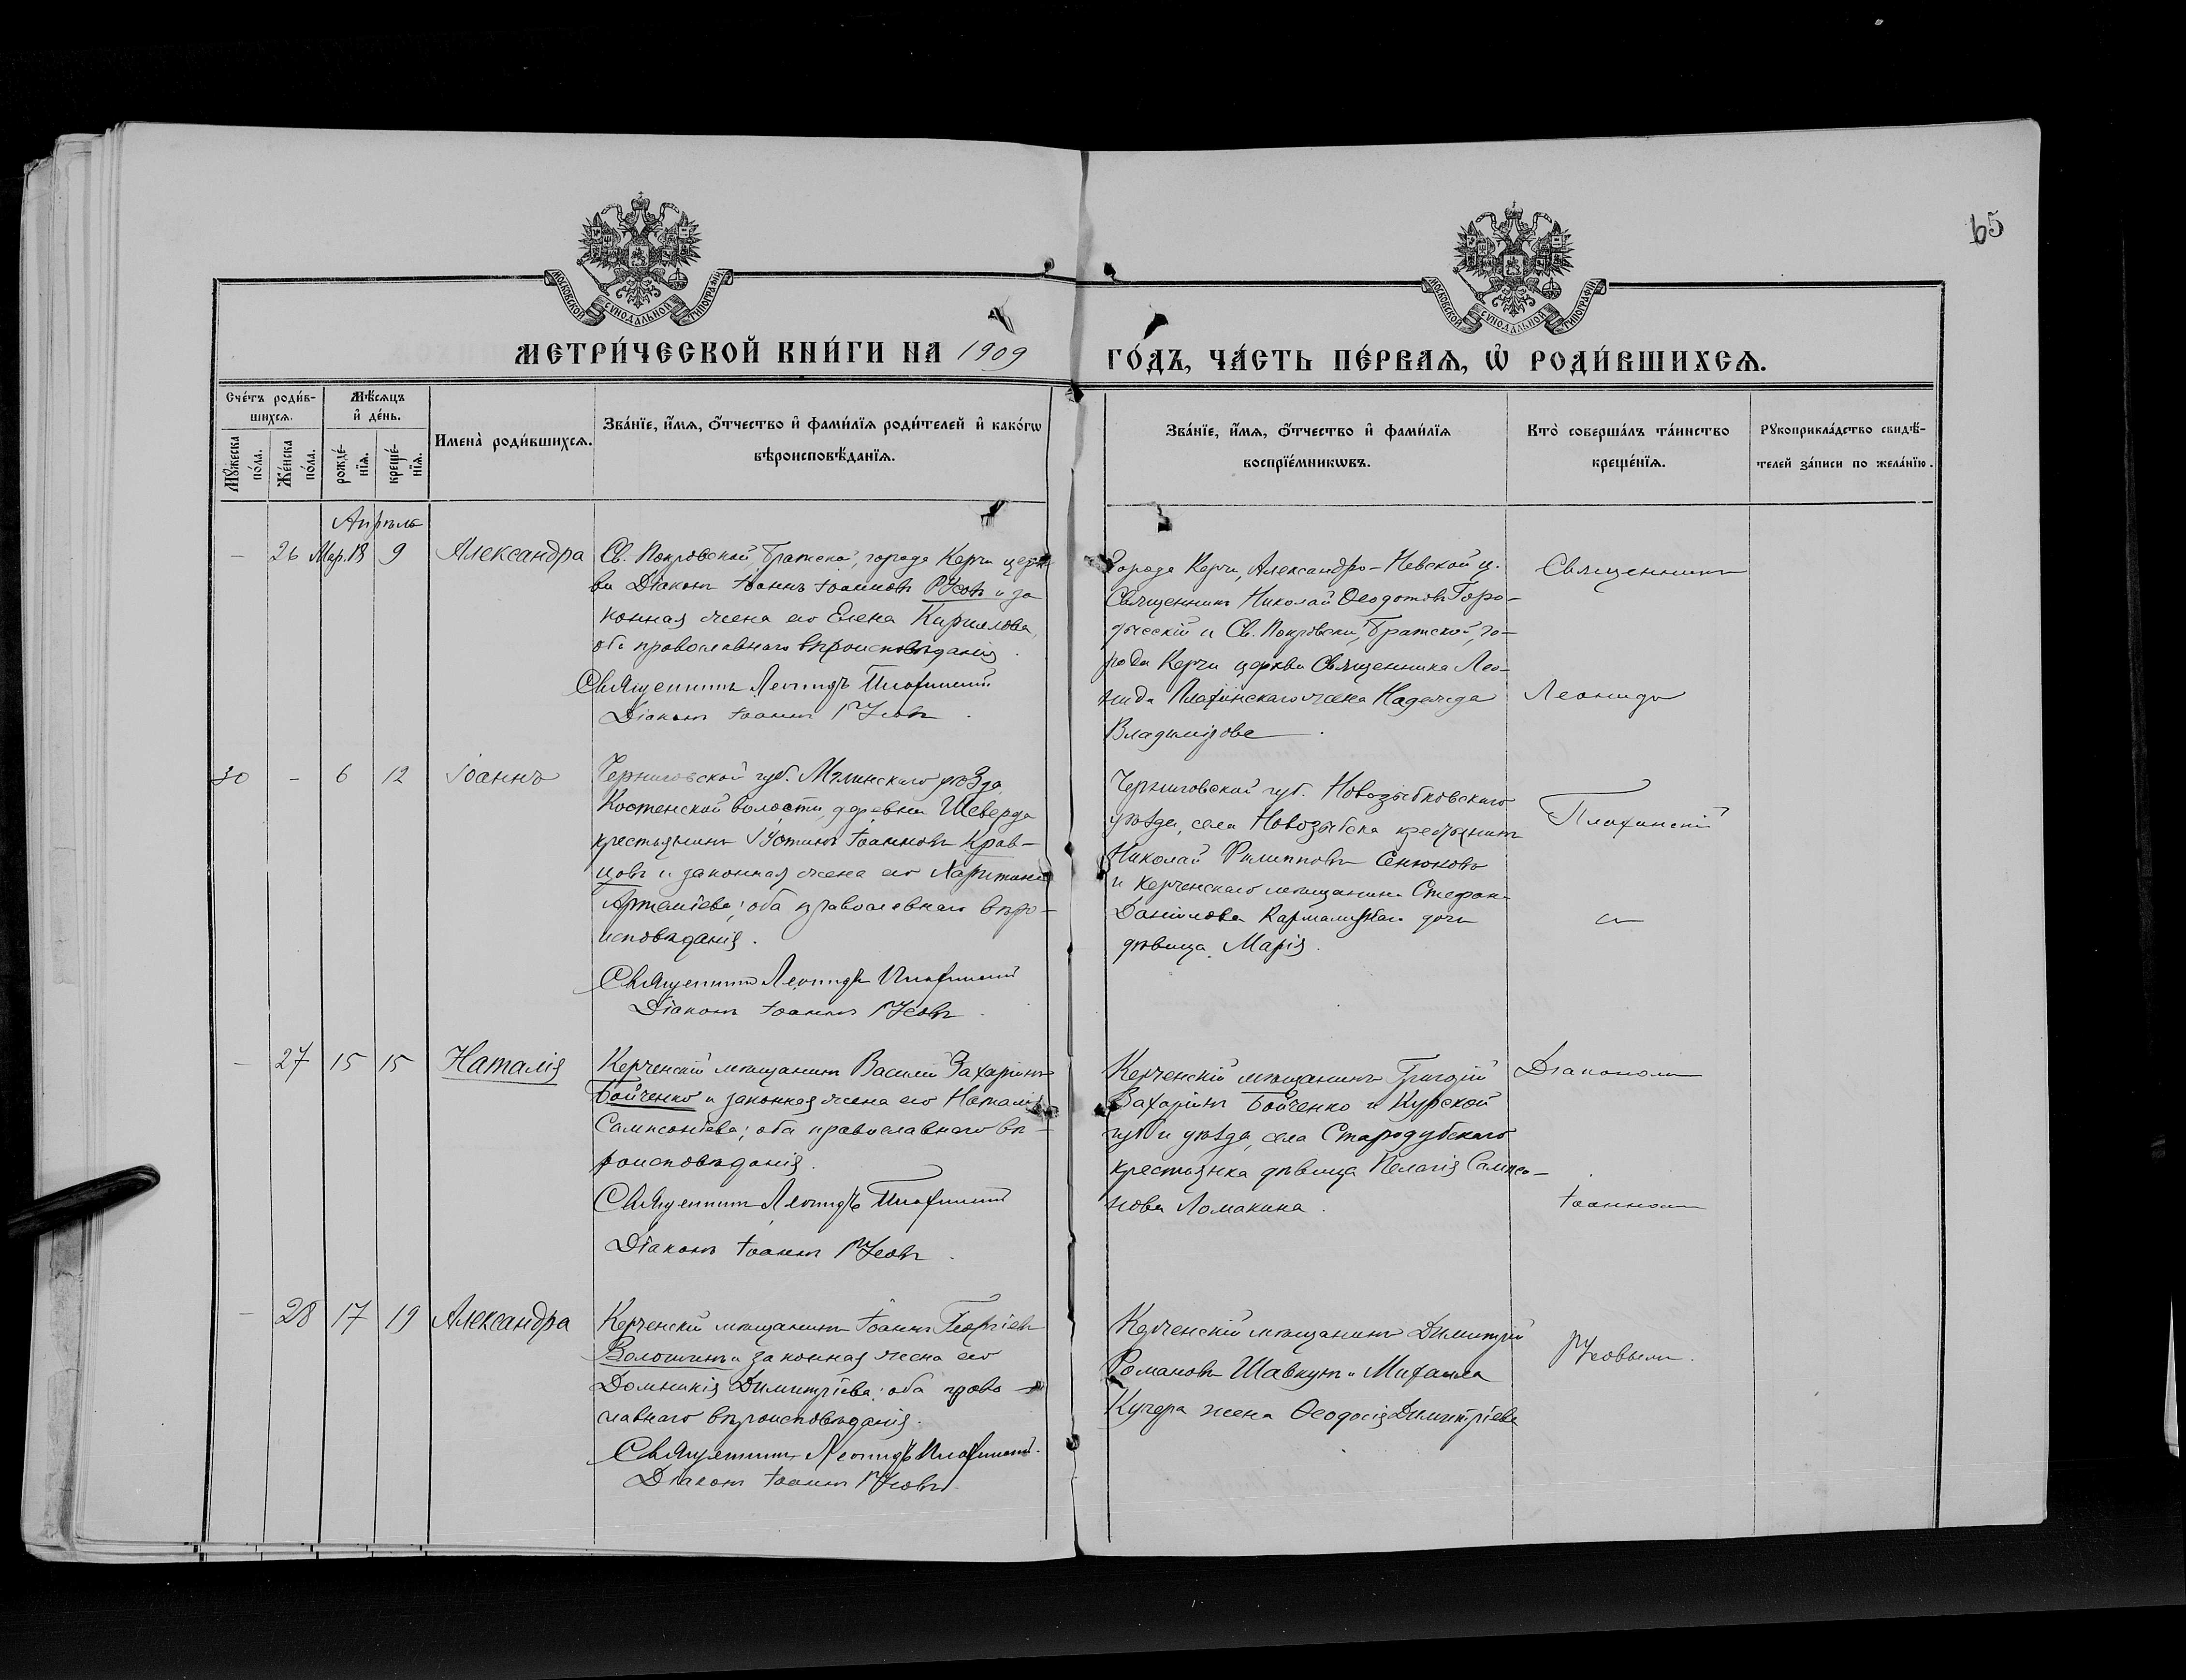 65
МОСКОВСКОЙ СѴНОДАЛЬНОЙ ТИПОГРАФІИ
МОСКОВСКОЙ СѴНОДАЛЬНОЙ ТИПОГРАФІИ
МЕТРИ́ЧЕСКОЙ КНИ́ГИ НА 1909 ГО́ДЪ, ЧА́СТЬ ПЕ́РВАЯ, Ѡ҆ РОДИ́ВШИХСЯ.
Сче́тъ роди́в-
шихся.
Мꙋ́жеска по́ла.
Же́нска по́ла.
Мѣ́сяцъ
и҆ де́нь.
рожде́-
нїя.
креще́-
нїя.
Имена̀ роди́вшихся.
Зва́нїе, и҆́мя, ѻ҆́тчество и҆ фами́лїя роди́телей и҆ како́гѡ
вѣроисповѣ́данїя.
Зва́нїе, и҆́мя, ѻ҆́тчество и҆ фами́лїя
воспрїе́мникѡвъ.
Кто̀ соверша́лъ та́инство
креще́нїя.
Рꙋкоприкла́дство свидѣ́-
телей за́писи по жела́нїю.
Апрѣль
— 26 Мар. 18 9 Александра
Св. Покровской, Братской, города Керчи церк-
ви Діаконъ Іоаннъ Іоанновъ Усовъ и за
конная жена его Елена Кириллова,
оба православнаго вѣроисповѣданія.
Священникъ Леонидъ Плафинскій
Діаконъ Іоаннъ Усовъ.
Города Керчи, Александро-Невской ц.
Священникъ Николай Ѳеодотовъ Горо-
дческій и Св. Покровской, Братской, го-
рода Керчи церкви Священника Лео-
нида Плафинскаго жена Надежда
Владимірова.
Священникъ
Леонидъ
30 — 6 12 Іоаннъ
Черниговской губ. Мглинскаго уѣзда
Костенской волости, деревни Шеверда
крестьянинъ Устинъ Іоанновъ Крав-
цовъ и законная жена его Харитина
Артеміева; оба православнаго вѣро-
исповѣданія.
Священникъ Леонидъ Плафинскій
Діаконъ Іоаннъ Усовъ.
Черниговской губ. Новозыбковскаго
уѣзда, села Новозыбска крестьянинъ
Николай Филипповъ Сенюковъ
и Керченскаго мѣщанина Стефана
Даніилова дочь
дѣвица Марія.
Плафинскій
съ
— 27 15 15 Наталія
Керченскій мѣщанинъ Василій Захаріинъ
Бойченко и законная жена его Наталія
Сампсоніева; оба православнаго вѣ-
роисповѣданія.
Священникъ Леонидъ Плафинскій
Діаконъ Іоаннъ Усовъ.
Керченскій мѣщанинъ Григорій
Захаріинъ Бойченко и Курской
губ. и уѣзда, села Стародубскаго
крестьянка дѣвица Пелагія Сампсо-
нова Ломакина.
Діакономъ
Іоанномъ
— 28 17 19 Александра
Керченскій мѣщанинъ Іоаннъ Георгіевъ
Волошинъ и законная жена его
Домникія Димитріева; оба право-
славнаго вѣроисповѣданія.
Священникъ Леонидъ Плафинскій.
Діаконъ Іоаннъ Усовъ.
Керченскій мѣщанинъ Димитрій
Романовъ Шавкунъ и Михаила
Кучера жена Ѳеодосія Димитріева
Усовымъ.